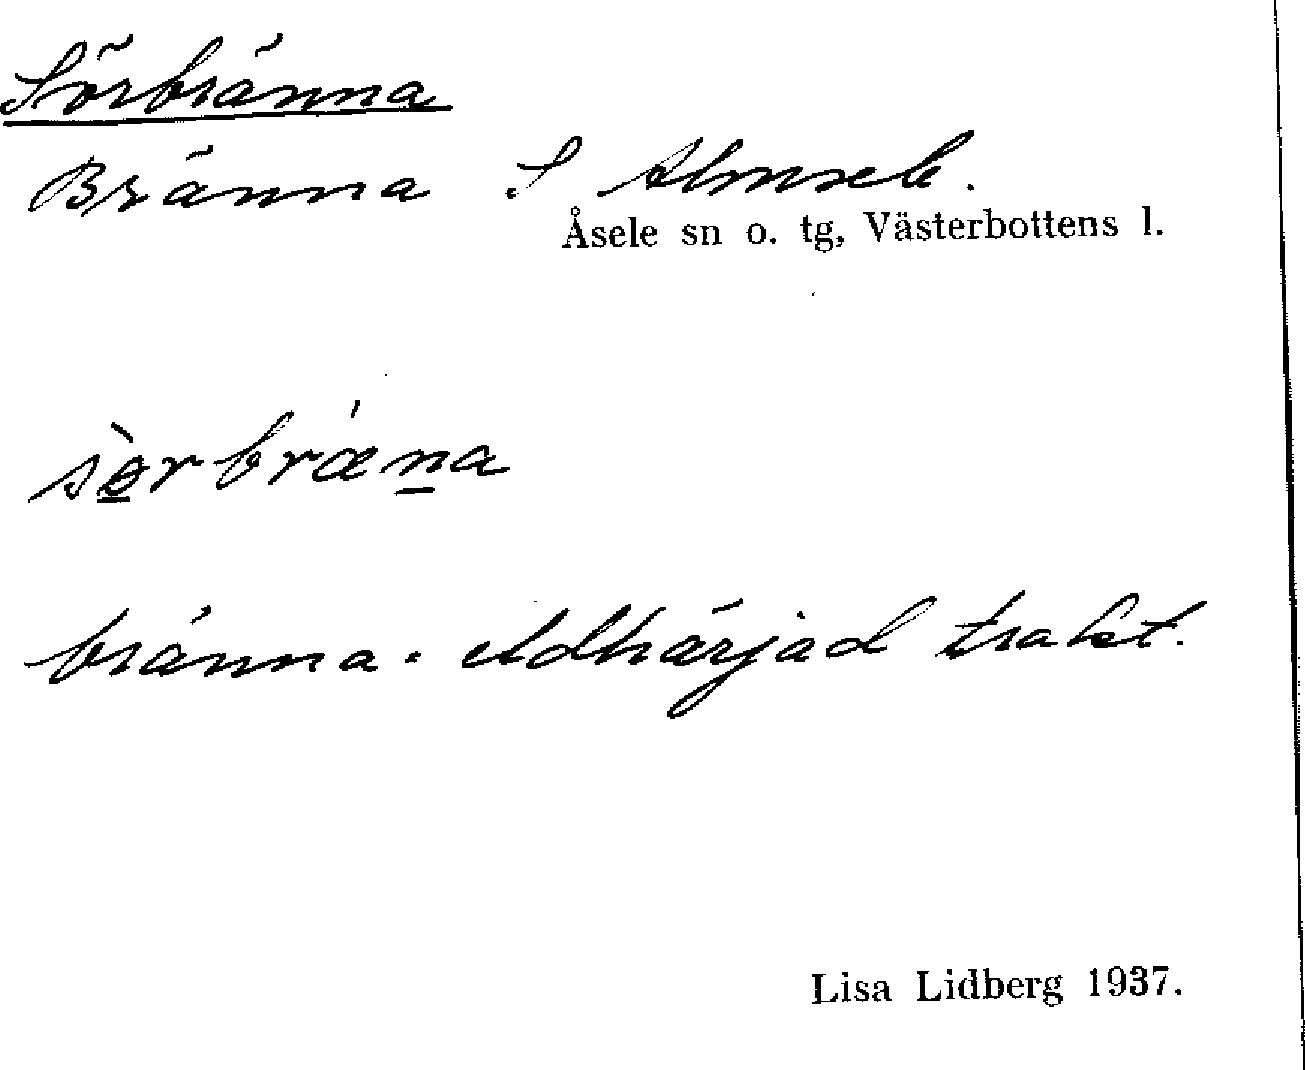 Sörbränna
Bränna S Almsele.
Åsele sn o. tg, Västerbottens l.
sə̀rbræ̍na
bränna = Eldhärjad trakt.
Lisa Lidberg 1937.